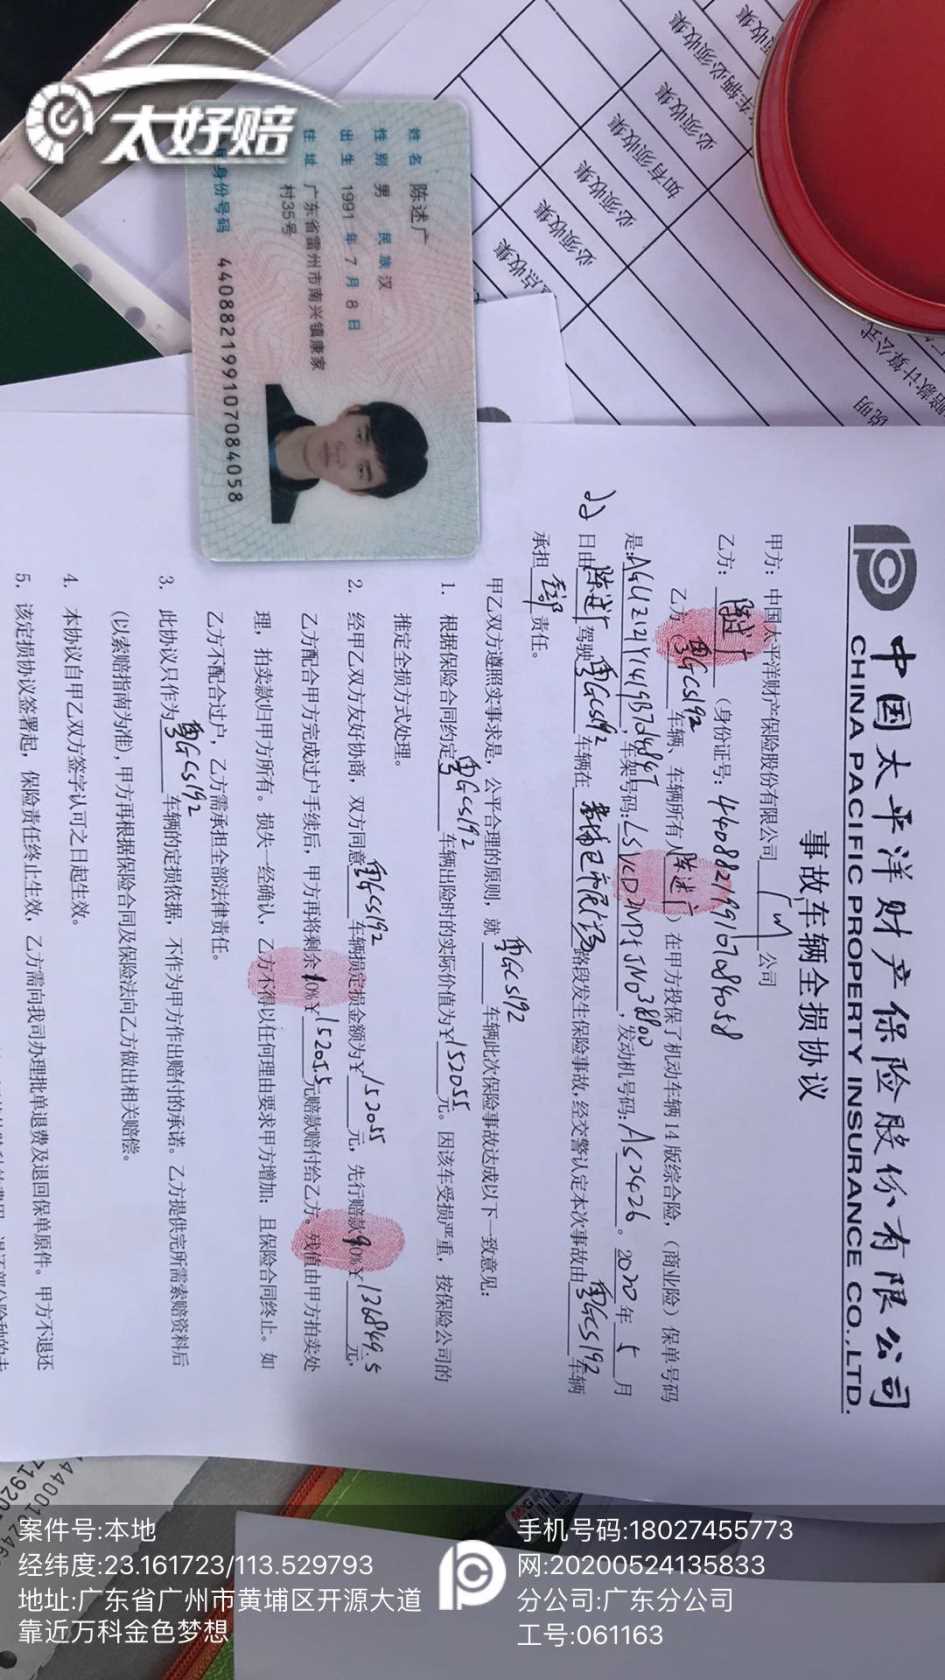 太好赔
姓名 陈述广
性别 男 民族 汉
出生 1991 年 7 月 8 日
住址 广东省雷州市南兴镇康家
村35号
身份号码 440882199107084058
必须收集
必须收集
如有须收集
必须收集
必须收集
点收集
赔款计算公式
说明
中国太平洋财产保险股份有限公司
CHINA PACIFIC PROPERTY INSURANCE CO.,LTD.
事故车辆全损协议
甲方：中国太平洋财产保险股份有限公司 广州 公司
乙方：陈述广（身份证号：440882199107084058
乙方（粤GCS192 车辆、车辆所有人陈述广）在甲方投保了机动车辆14版综合险，（商业险）保单号码
是： ，车架号码： ，发动机号码：AS2426 。2020 年 5 月
22 日由陈述广驾驶粤GCS192 车辆在 路段发生保险事故,经交警认定本次事故由粤GCS192 车辆
承担 全部 责任。
甲乙双方遵照实事求是，公平合理的原则，就 粤GCS192 车辆此次保险事故达成以下一致意见：
1. 根据保险合同约定粤GCS192 车辆出险时的实际价值为￥152055 元。因该车受损严重，按保险公司的
推定全损方式处理。
2. 经甲乙双方友好协商，双方同意粤GCS192 车辆损定损金额为￥152055 元，先行赔款90%￥136849.5 元，
乙方配合甲方完成过户手续后，甲方再将剩余10%￥15205.5 元赔款赔付给乙方。残值由甲方拍卖处
理，拍卖款归甲方所有。损失一经确认，乙方不得以任何理由要求甲方增加；且保险合同终止。如
乙方不配合过户，乙方需承担全部法律责任。
3. 此协议只作为粤GCS192 车辆的定损依据，不作为甲方作出赔付的承诺。乙方提供完所需索赔资料后
(以索赔指南为准)，甲方再根据保险合同及保险法向乙方做出相关赔偿。
4. 本协议自甲乙双方签字认可之日起生效。
5. 该定损协议签署起，保险责任终止生效，乙方需向我司办理批单退费及退回保单原件。甲方不退还
案件号:本地
经纬度:23.161723/113.529793
地址:广东省广州市黄埔区开源大道
靠近万科金色梦想
手机号码:18027455773
网:20200524135833
分公司:广东分公司
工号:061163